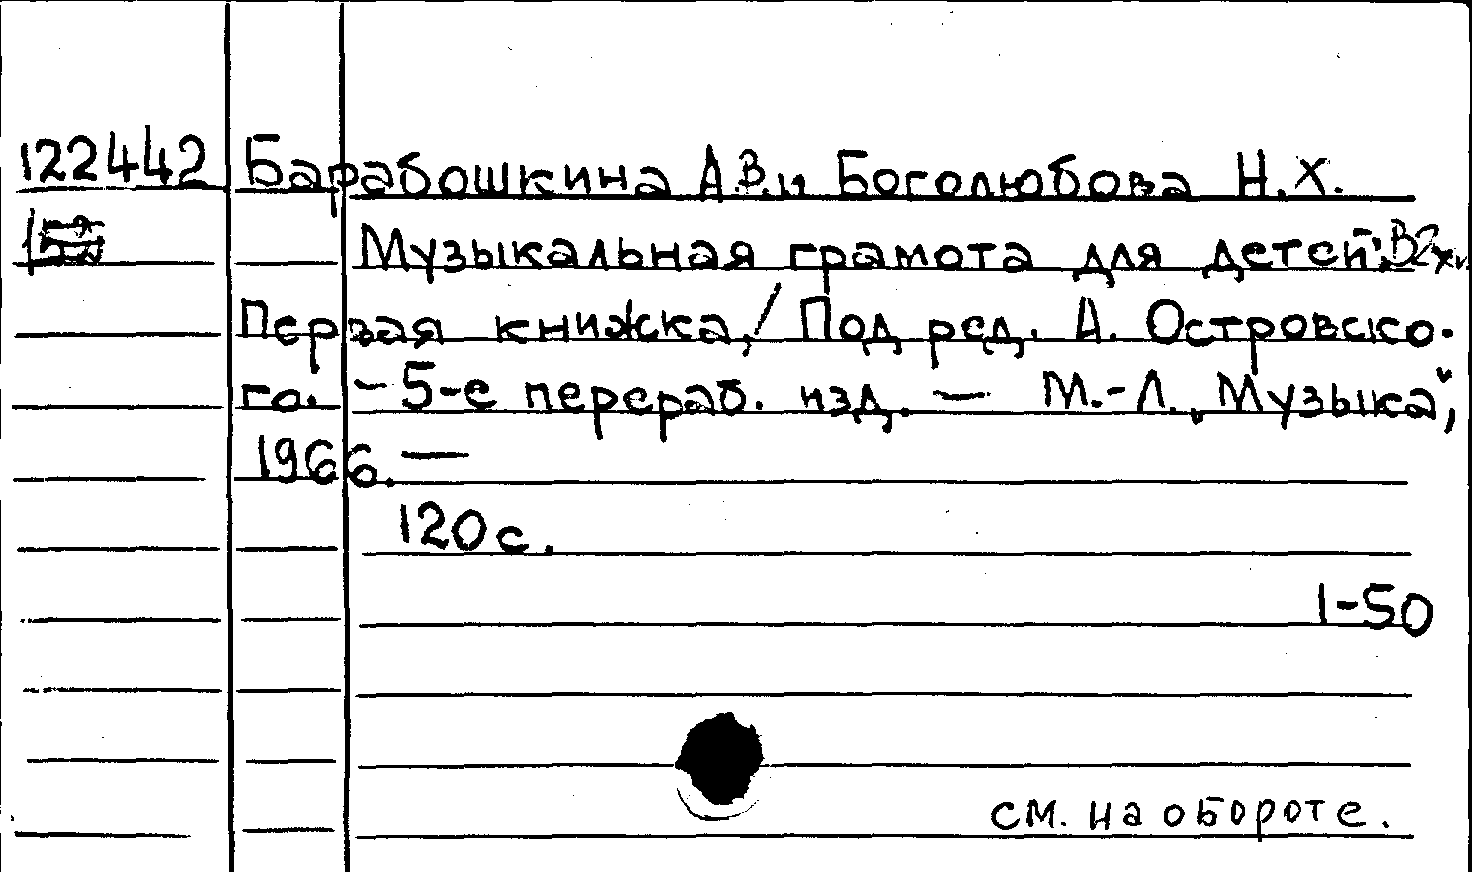 122442 Барабошкина А.В. и Боголюбова Н.Х.
Музыкальная грамота для детей: В2хк.
Первая книжка, / Под ред. А. Островско-
го. - 5-е перераб. изд. — М.-Л. „Музыка",
1966. —
120 с.
1-50
см. на обороте.